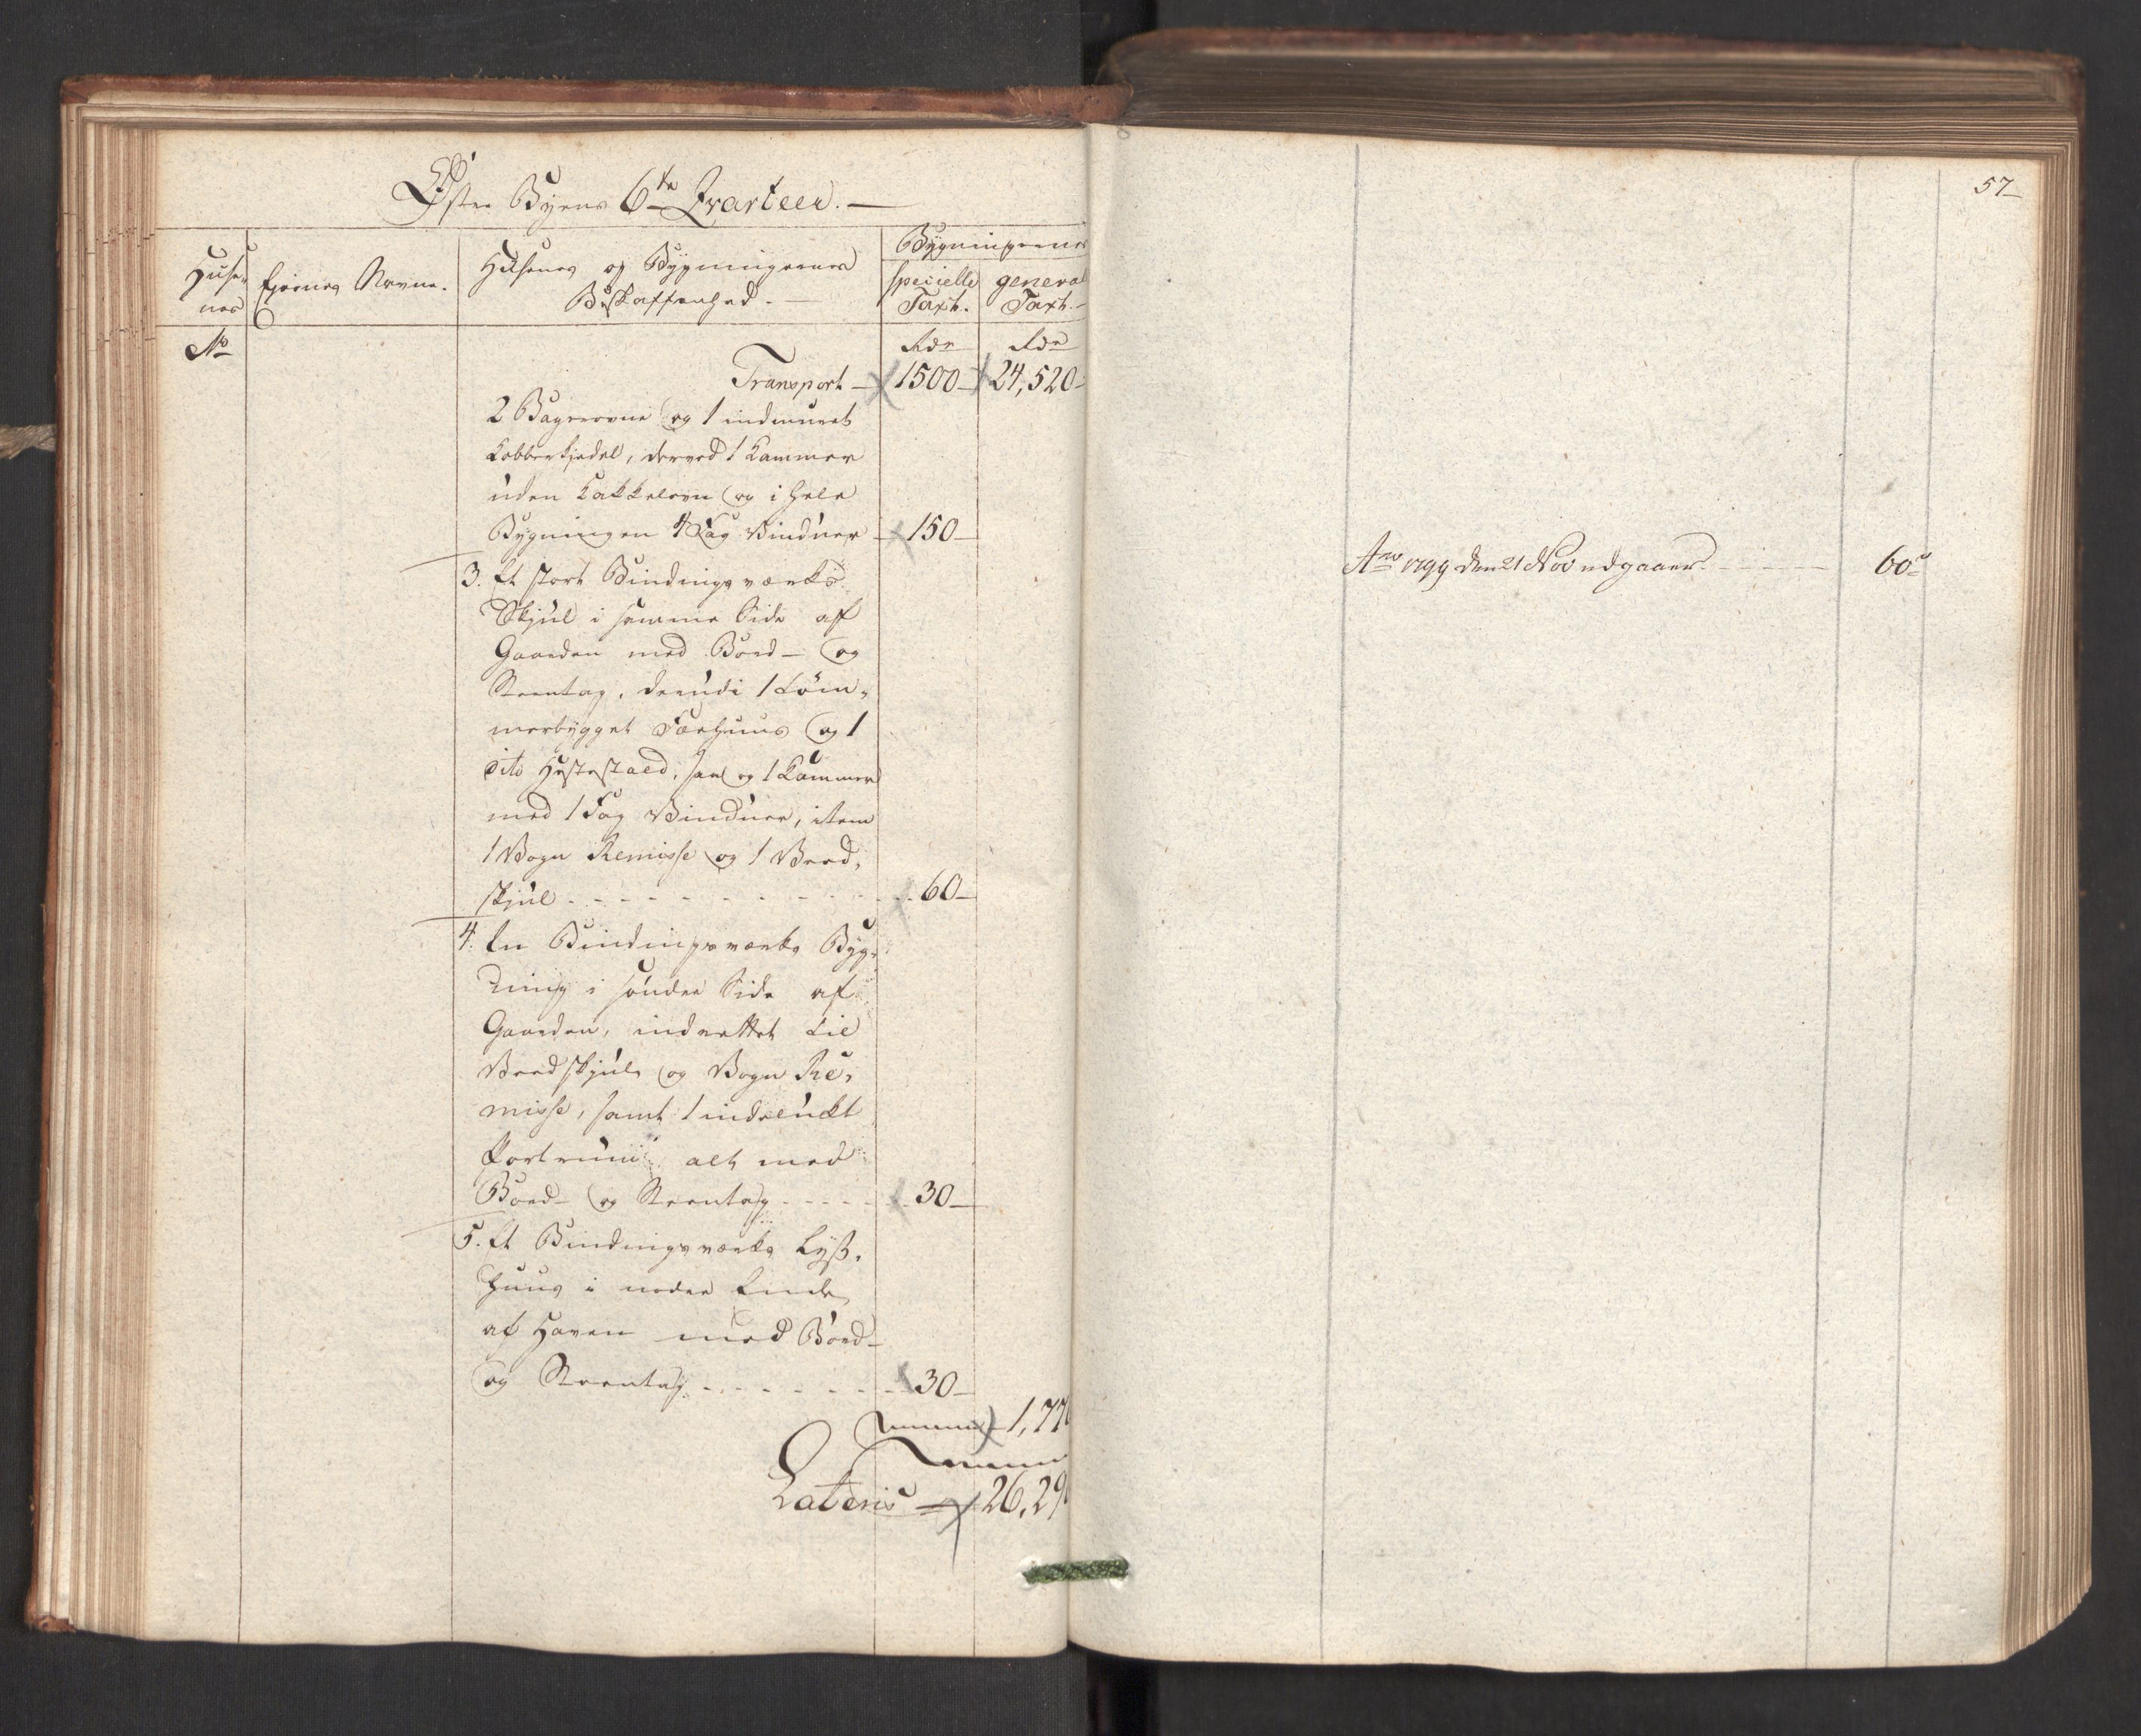 Østre Byens 6te Qvarteer.
Huse-
nes
Ejernes Navne.
Husenes og Bygningernes
Beskaffenhed.
Bygningernes
specielle
Taxt.
general
Taxt.
No
Rdr
Rdr
Transport 1500 24,520
2 Bagerovne og 1 indmuret
Kobberkjedel, derved 1 Kammer
uden Kakkelovn og i hele
Bygningen 4 Fag Vinduer 150
3. Et stort Bindingsværks
Skjul i samme Side af
Gaarden med Bord- og
Steentag, derudi 1 Töm-
merbygget Færhuus og 1
dito Hestestald, samt og 1 Kammer
med 1 Fag Vinduer, item
1 Vogn Remisse og 1 Veed-
skjul 60
4. En Bindingsværks Byg-
ning i sönder Side af
Gaarden, indrettet til
Veedskjul og Vogn Re-
misse, samt 1 indelukt
Portrum, alt med
Bord- og Steentag 30
5. Et Bindingsværks Lyst-
huus i nordre Ende
af Haven med Bord-
og Steentag 30
1,77
Lateris 26,29
57
Ano 1799 den 21 Nov udgaaer 60